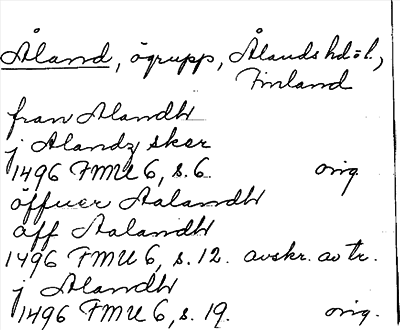 Åland, ögrupp, Ålands hd o l.,
Finland
fran Alandh
j Alandz sker
1496 FMU 6, s. 6. orig.
öffuer Aalandh
aff Aalandh
1496 FMU 6, s. 12. avskr. av tr.
j Alandh
1496 FMU 6, s. 19. orig.